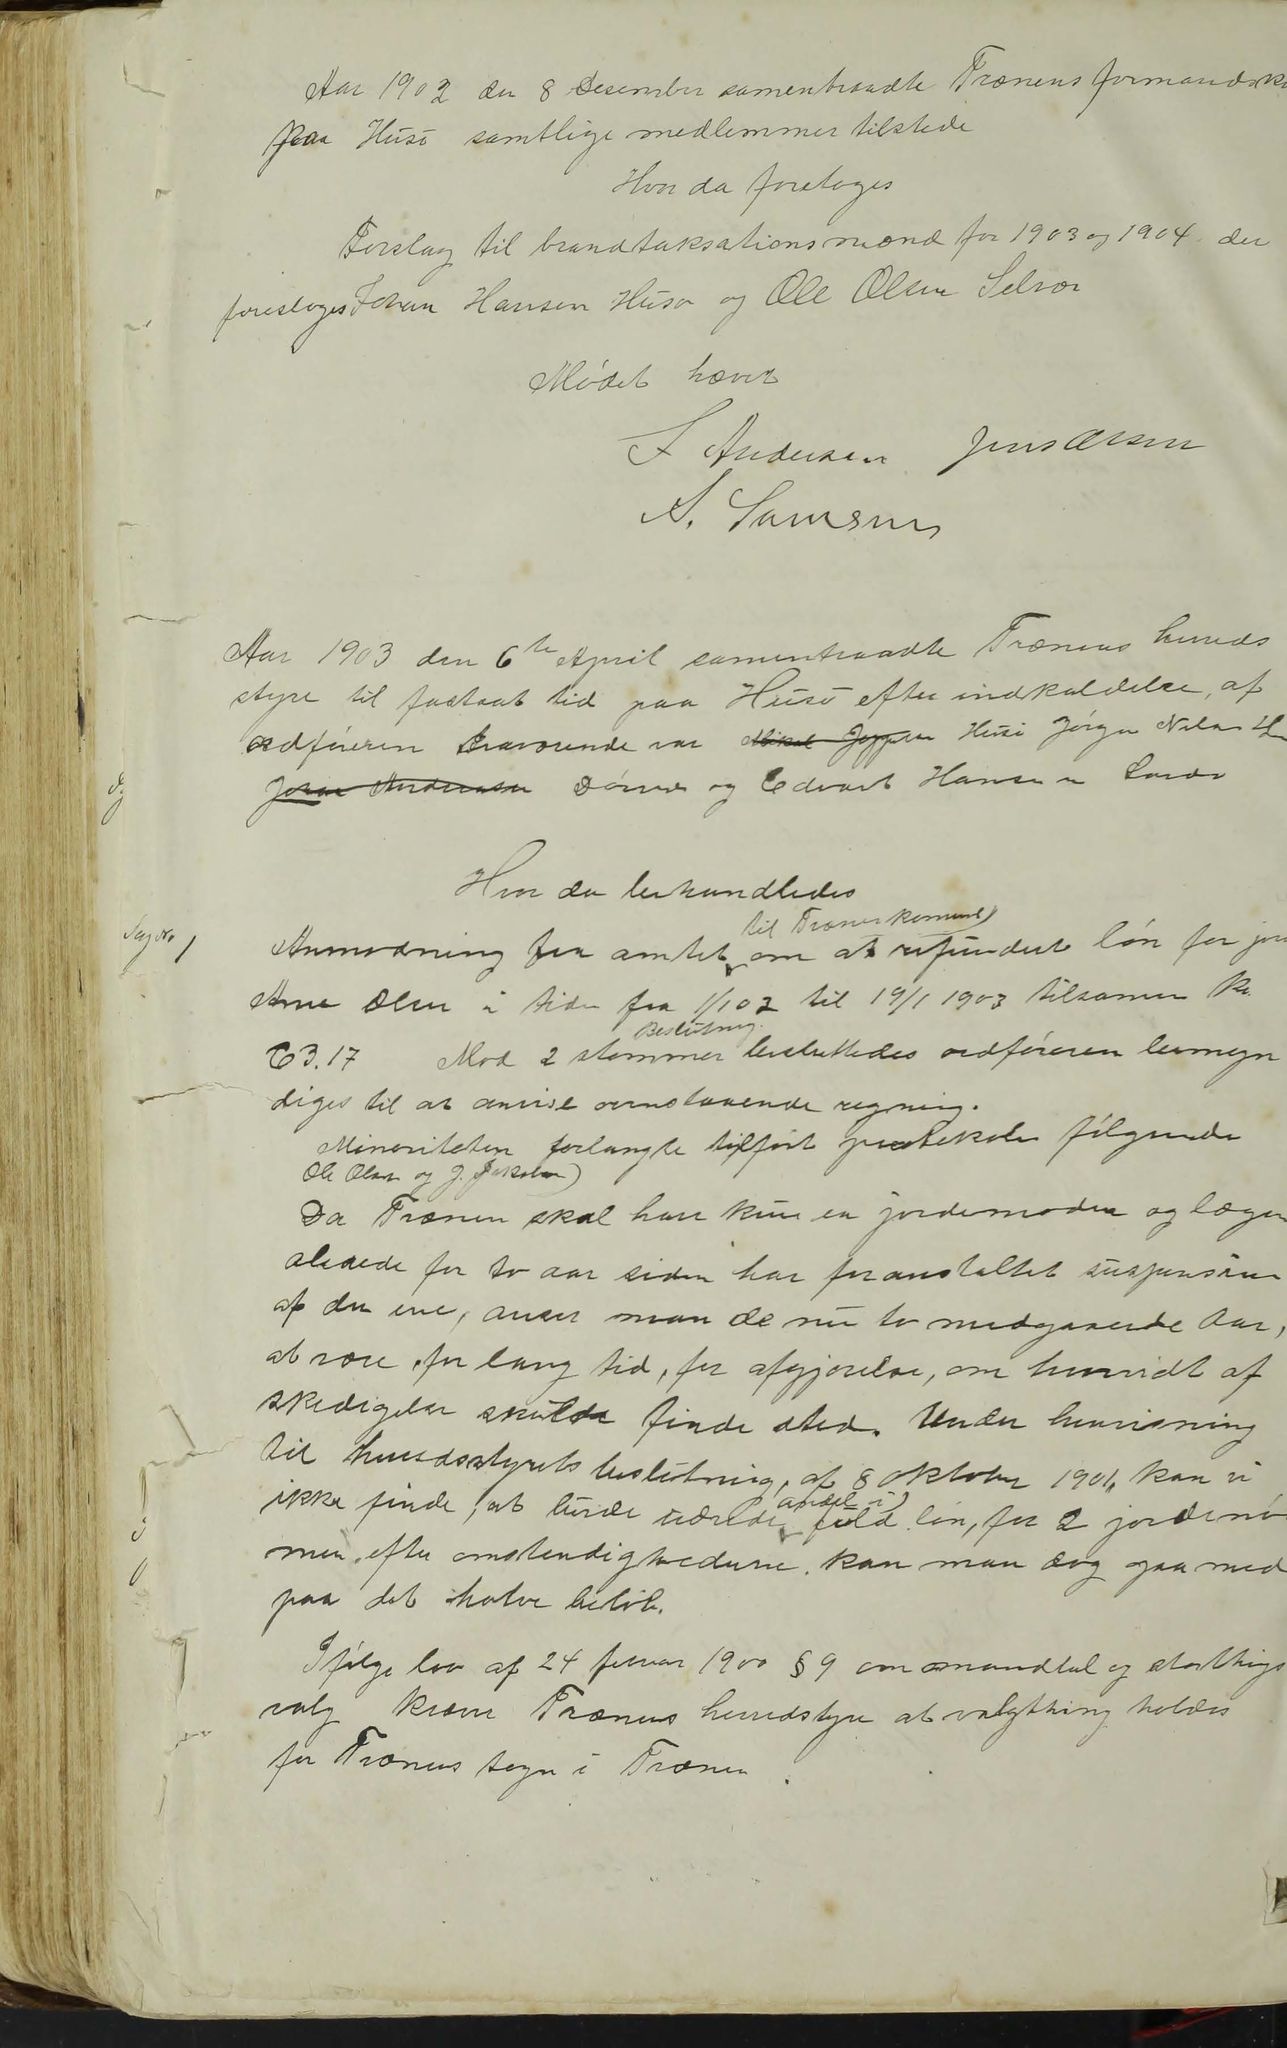 Aar 1902 den 8 Desember samentraadte Trænens formandsk
paa Husö samtlige medlemmer tilstede
Hvor da foretoges
Forslag til brandtaksationsmænd for 1903 og 1904. der
foresloges Johan Hansen Husö og Ole Olsen Selvær
Mödet hævet
S Andersen Jens Olsen
A. Samsen
Aar 1903 den 6te April samentraadte Trænens herreds
styre til fastsat tid paa Husö efter indkaldelse, af
ordföreren fraværende var Mikal Jeppesen Husö Jörgen Nilsen
Johan Andreassen Dörnes og Edvart Hansen
Hvor da behandledes
Sag No 1
til Trænen komune)
Anmodning fra amtet om at refundert lön for jor
Anne Olsen i tiden fra 1/1 02 til 19/1 1903 tilsamen Kr.
63.17 Mod 2 stemmer besluttedes ordföreren bemyn
Beslutning.
diges til at anvise ovenstaaende regning.
Minoriteten forlangte tilfört protokolen fölgende
Ole Olsen og J. Jakobsen)
Da Trænen skal have kun en jordemoder og lægen
allerede for to aar siden har foranstaltet suspension
af den ene, anser man de nu to medgaaende Aar,
at være for lang tid, for afgjörelse, om hvorvidt af
skedigelse skulde finde sted. Under henvisning
til herredsstyrets beslutning, af 8 oktober 1901, kan vi
ikke finde, at burde udrede fuld lön, for 2 jordemö
andel i)
men efter omstendighederne kan man dog gaa med
paa det halve belöb.
Ifölge lov af 24 februar 1900 § 9 om mandtal og storthings
valg kræver Trænens herredstyre at valgthing holdes
for Trænens sogn i Trænen.